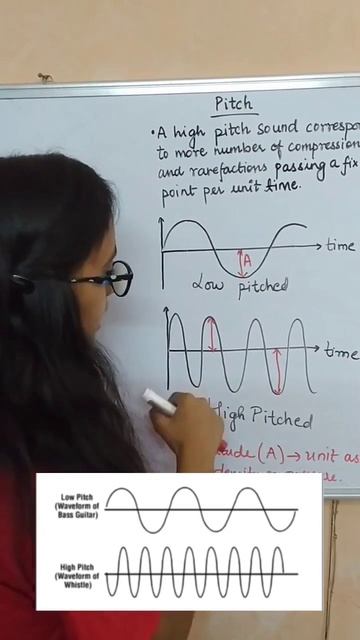 Pitch
• A high pitch sound correspo
to more number of compression
and rarefactions passing a fix
point per unit time.
A
time
Low pitched
time
High Pitched
ude (A) → unit as
Low Pitch
(Waveform of
Bass Guitar)
High Pitch
(Waveform of
Whistle)